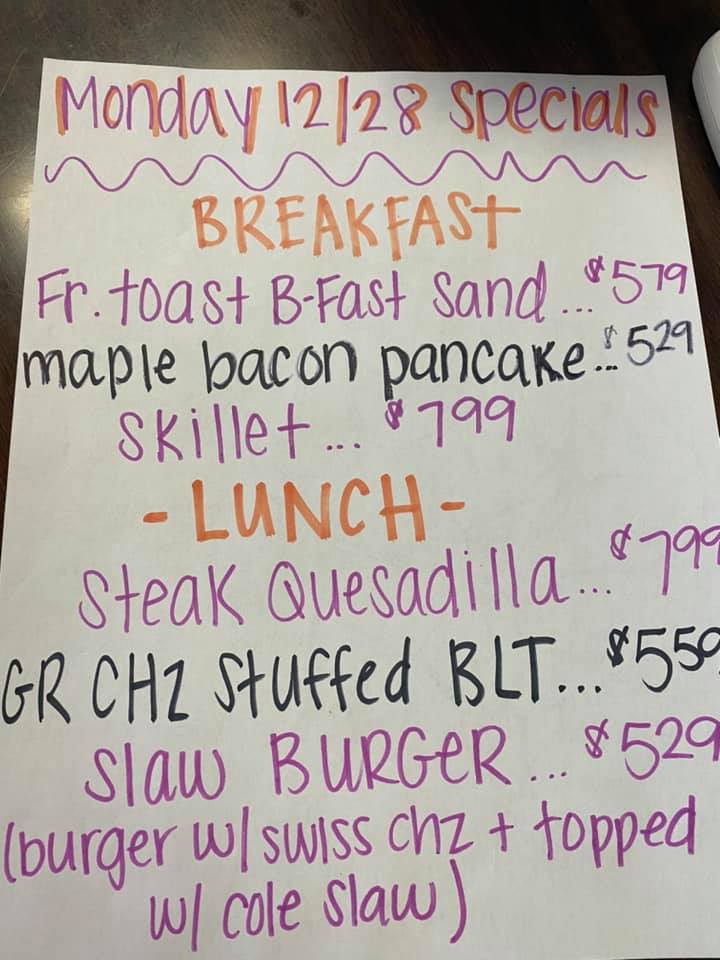 Monday 12/28 Specials
BREAKFAST
Fr. toast B-Fast Sand... $579
maple bacon pancake... $529
Skillet... $799
- LUNCH -
Steak Quesadilla... $799
GR CHZ Stuffed BLT... $559
Slaw BURGER... $529
(burger w/ swiss chz + topped
w/ cole slaw)